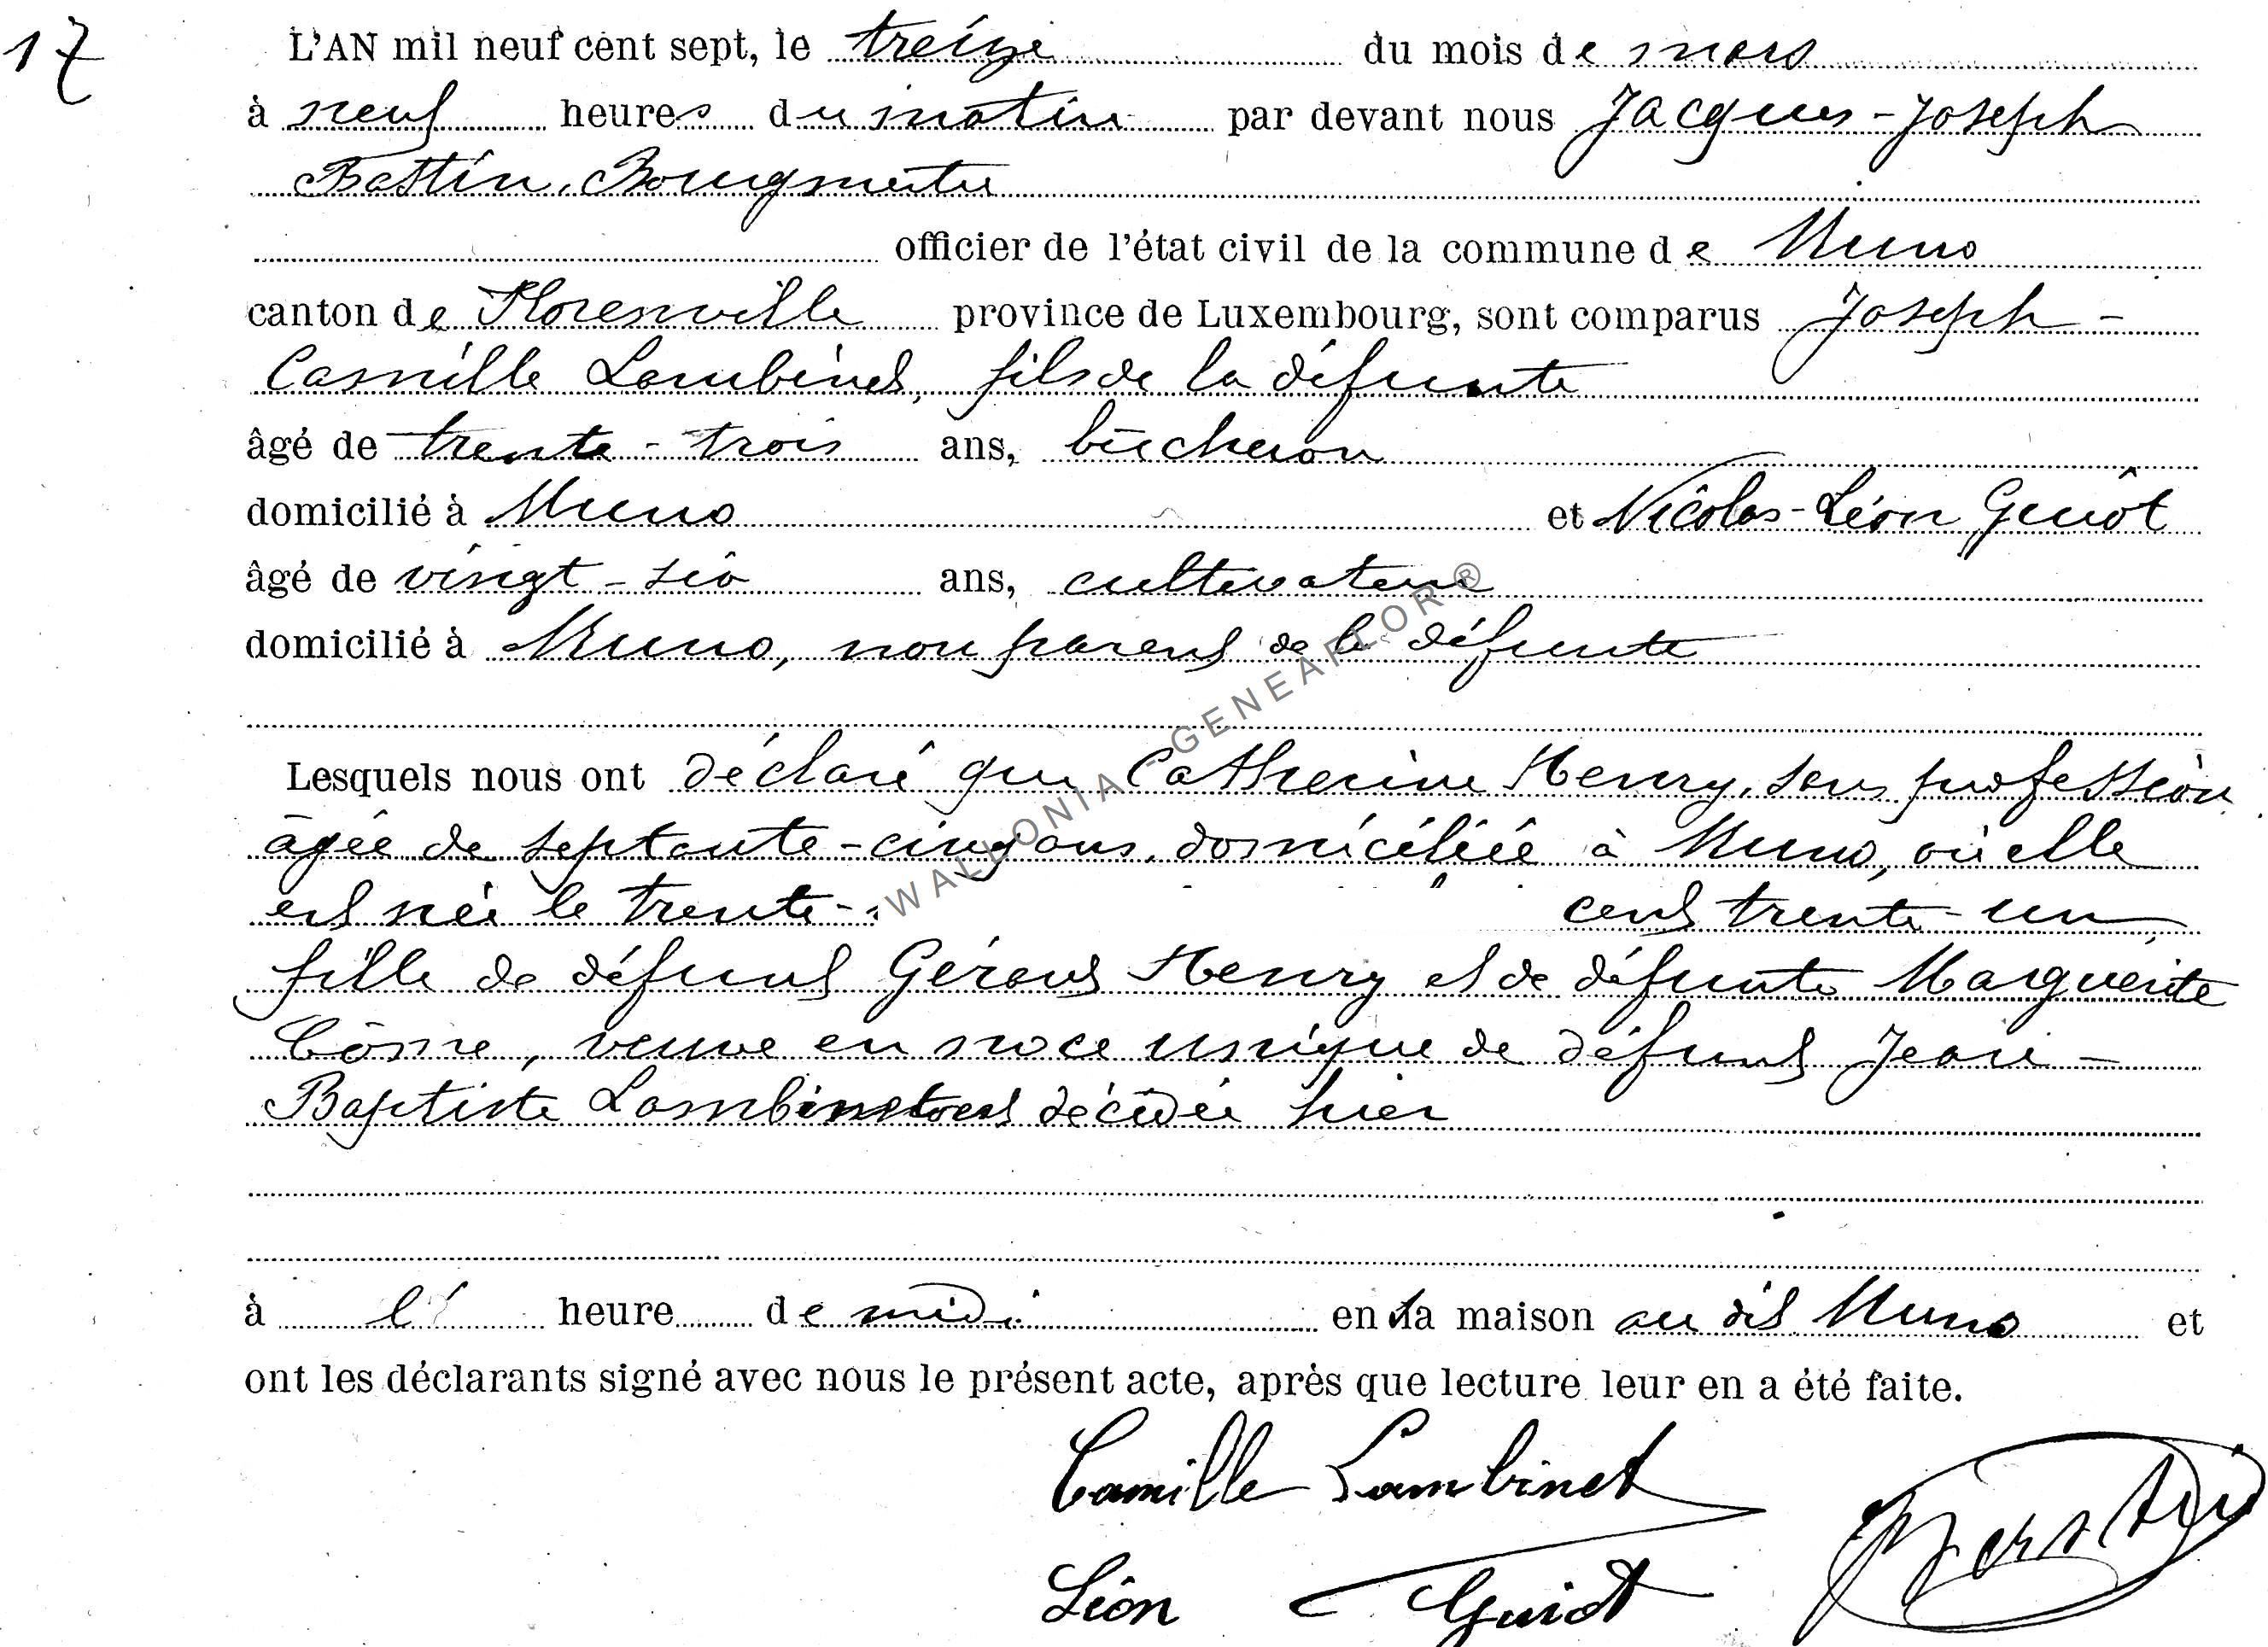 17
L'AN mil neuf cent sept, le treize du mois de mars
à neuf heures du matin par devant nous Jacques-Joseph
Bastin, Bourgmestre
officier de l'état civil de la commune de Muno
canton de Florenville province de Luxembourg, sont comparus Joseph-
Camille Lambinet, fils de la défunte
âgé de trente-trois ans, bûcheron
domicilié à Muno et Nicolas-Léon Guiot
âgé de vingt-six ans, cultivateur
domicilié à Muno, non parent de la défunte
Lesquels nous ont déclaré que Catherine Henry, sans profession
âgée de septante-cinq ans, domiciliée à Muno, où elle
est née le trente- cent trente-un
fille de défunt Gérard Henry et de défunte Marguerite
Côme, veuve en noce unique de défunt Jean-
Baptiste Lambinet est décédée hier
à l' heure de midi en sa maison au dit Muno et
ont les déclarants signé avec nous le présent acte, après que lecture leur en a été faite.
Camille Lambinet
Léon Guiot
Bastin
WALLONIA - GENEAFLOR ®